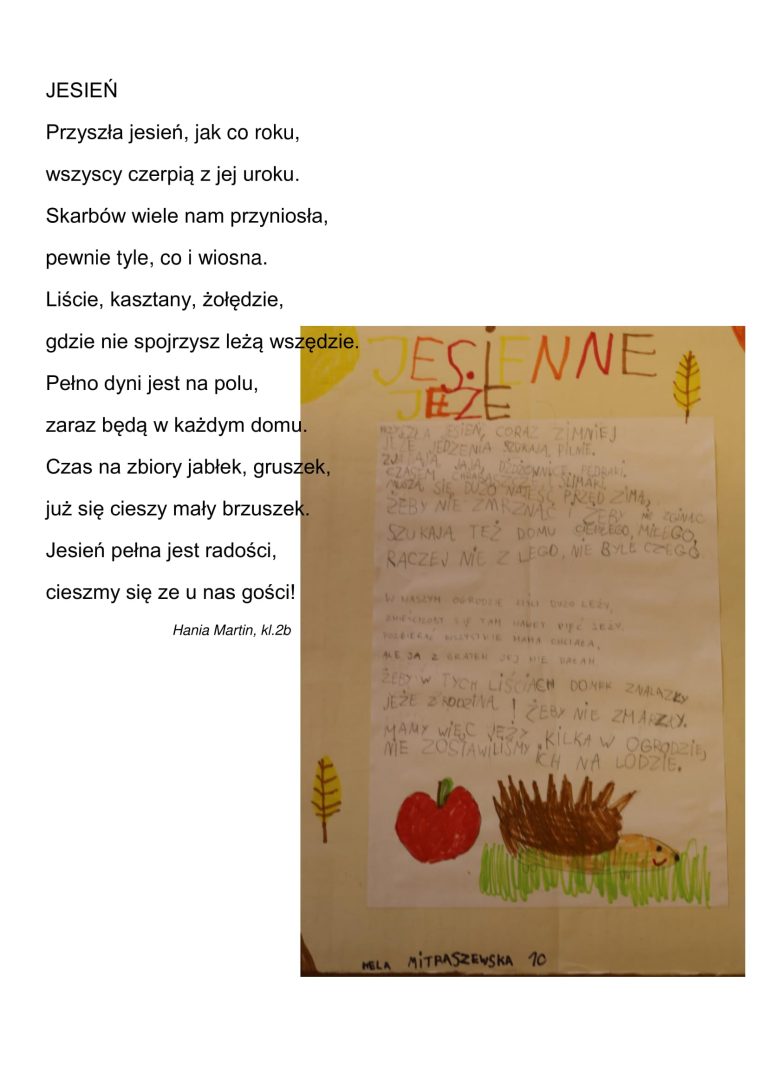 JESIEŃ
Przyszła jesień, jak co roku,
wszyscy czerpią z jej uroku.
Skarbów wiele nam przyniosła,
pewnie tyle, co i wiosna.
Liście, kasztany, żołędzie,
gdzie nie spojrzysz leżą wszędzie.
Pełno dyni jest na polu,
zaraz będą w każdym domu.
Czas na zbiory jabłek, gruszek,
już się cieszy mały brzuszek.
Jesień pełna jest radości,
cieszmy się ze u nas gości!
Hania Martin, kl.2b
JESIENNE
JEŻE
JESIEŃ, CORAZ ZIMNIEJ
JEŻE JEDZENIA SZUKAJĄ PILNIE.
JAJA, DŻDŻOWNICE, PĘDRAKI.
CZASEM ŚLIMAKI.
MUSZĄ SIĘ DUŻO NAJEŚĆ PRZED ZIMĄ,
ŻEBY NIE ZMRZNĄĆ I ŻEBY NIE ZGINĄĆ
SZUKAJĄ TEŻ DOMU CIEPŁEGO, MIŁEGO,
RACZEJ NIE Z LEGO, NIE BYLE CZEGO
W NASZYM OGRODZIE LIŚCI DUŻO LEŻY,
ZMIEŚCIŁOBY SIĘ TAM NAWET PIĘĆ JEŻY.
WSZYSTKIE MAMA CHCIAŁA,
ALE JA Z BRATEM JEJ NIE
ŻEBY W TYCH LIŚCIACH DOMEK ZNALAZŁY
JEŻE Z RODZINĄ I ŻEBY NIE ZMARZŁY.
MAMY WIĘC JEŻY KILKA W OGRODZIE,
NIE ZOSTAWILIŚMY ICH NA LODZIE.
HELA MITRASZEWSKA 1C